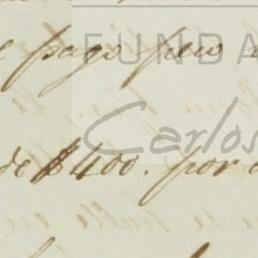 pago pero
FUNDA
Carlos
de $400. por